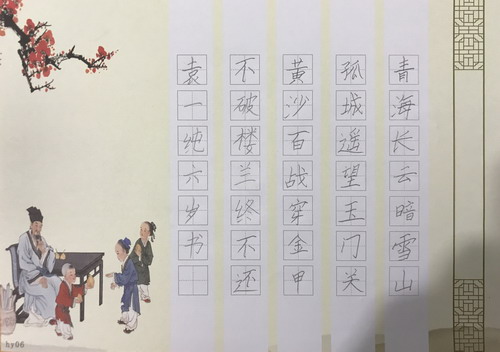 青海长云暗雪山
孤城遥望玉门关
黄沙百战穿金甲
不破楼兰终不还
袁一纯六岁书
hy06